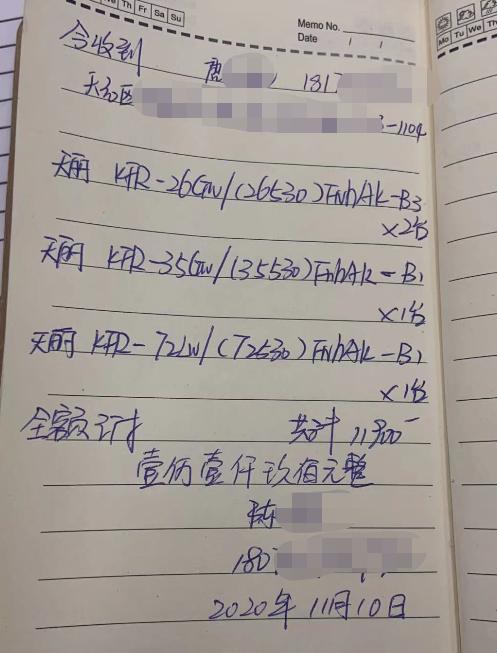 We Th Fr Sa Su
Memo No.
Date / /
Mo Tu We Th
今收到 唐 181
天元区 3-1104
天丽 KFR-26GW/(26530)FNhAK-B3
×2台
天丽 KFR-35GW/(35530)FNhAK-B1
×1台
天丽 KFR-72LW/(72530)FNhAK-B1
×1台
全额订才 共计 11900-
壹伍壹仟玖佰元整
陈
180
2020年11月10日